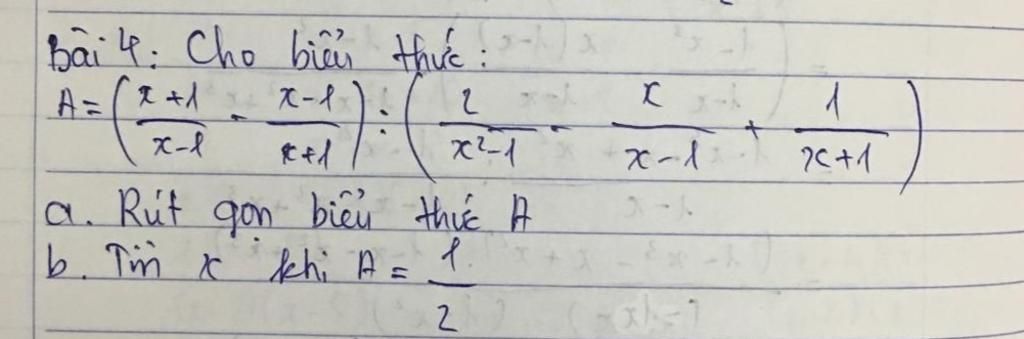 Bài 4: Cho biểu thức:
A = ( (x+1)/(x-1) - (x-1)/(x+1) ) : ( 2/(x²-1) - x/(x-1) + 1/(x+1) )
a. Rút gọn biểu thức A
b. Tìm x khi A = 1/2